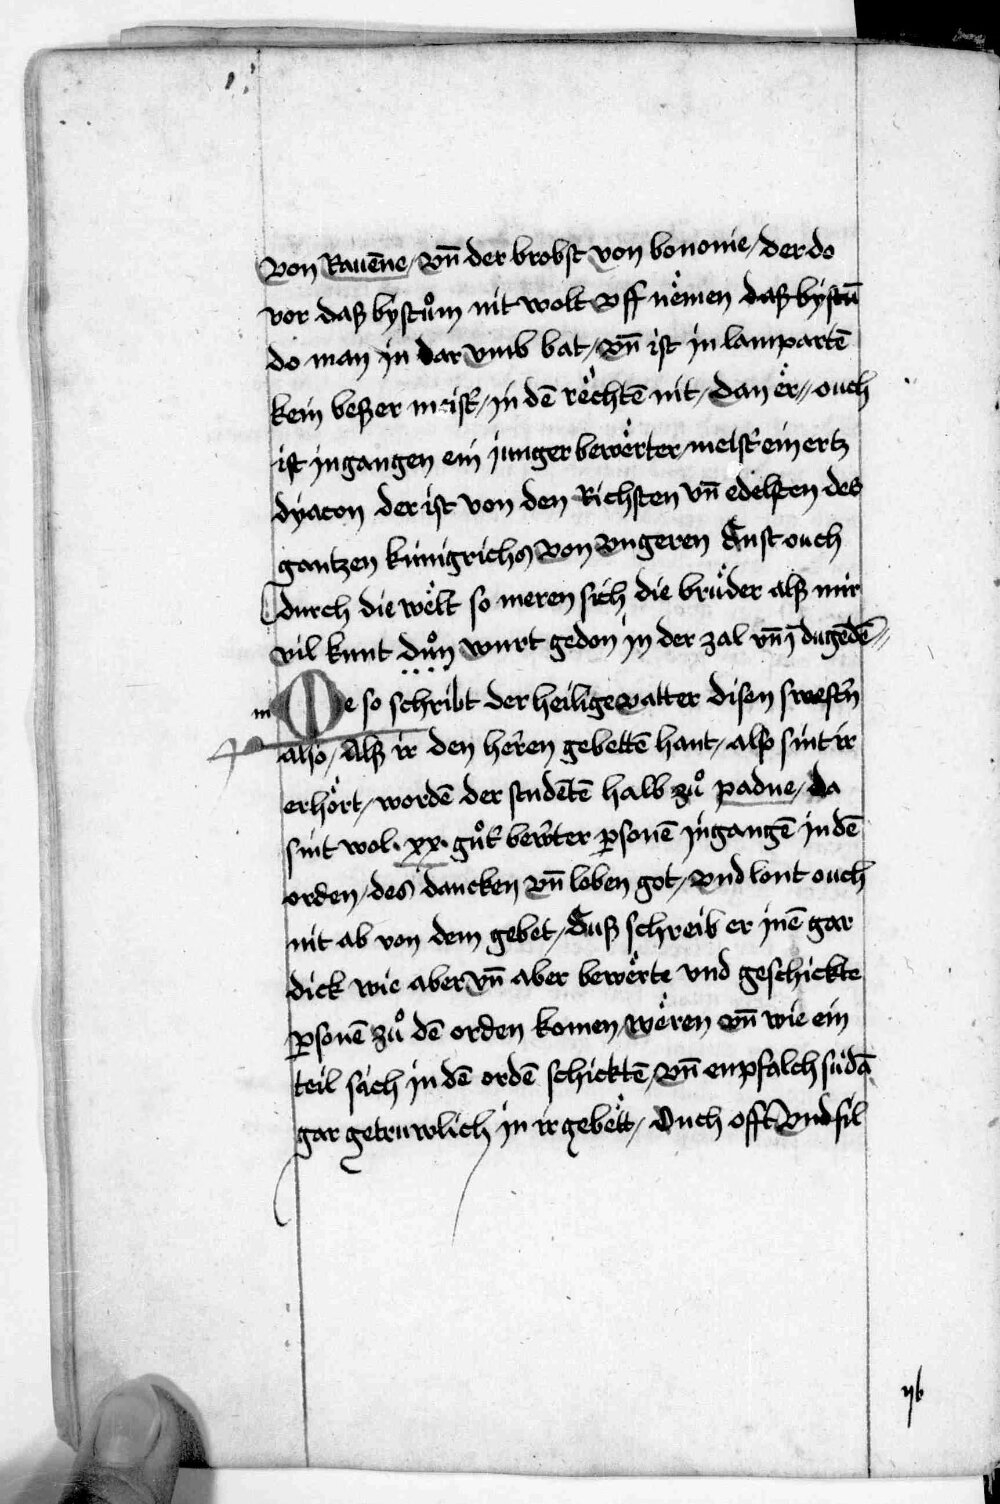 von Rauēne / vn̄ der brobst von bononie / der do
vor daß bystům nit wolt vff nëmen daß bystū
do man in dar vmb bat / vn̄ ist in lampartē
kein beßer meist̕ / in dē rëchtē nit / dan ër // ouch
ist ingangen ein junger bewërter meist̕ ein ertz
dyacon der ist von den Richsten vn̄ edelsten des
gantzen kúnigrichs von vngeren Sust ouch
durch die wëlt so meren sich die brüder alß mir
vil kunt důn wurt gedon in der zal vn̄ ī dugēdē //
m
Me so schribt der heilige vatter disen swestn̄
also / Alß ir den heren gebettē hant / also sint ir
erhört / wordē der studētē halb zů padue / da
sint wol · xx · gůt̕ bewt̕er ꝑsonē ingangē in dē
orden / des dancken vn̄ loben got / vnd lont ouch
nit ab von dem gebet / Suß schreib er inē gar
dick wie aber vn̄ aber bewërte vnd geschickte
ꝑsonē zů dē orden komen wëren vn̄ wie ein
teil sich in dē ordē schicktē / vn̄ enpfalch sú dā
gar getruwlich in ir gebëtt / Ouch offt vnd fil